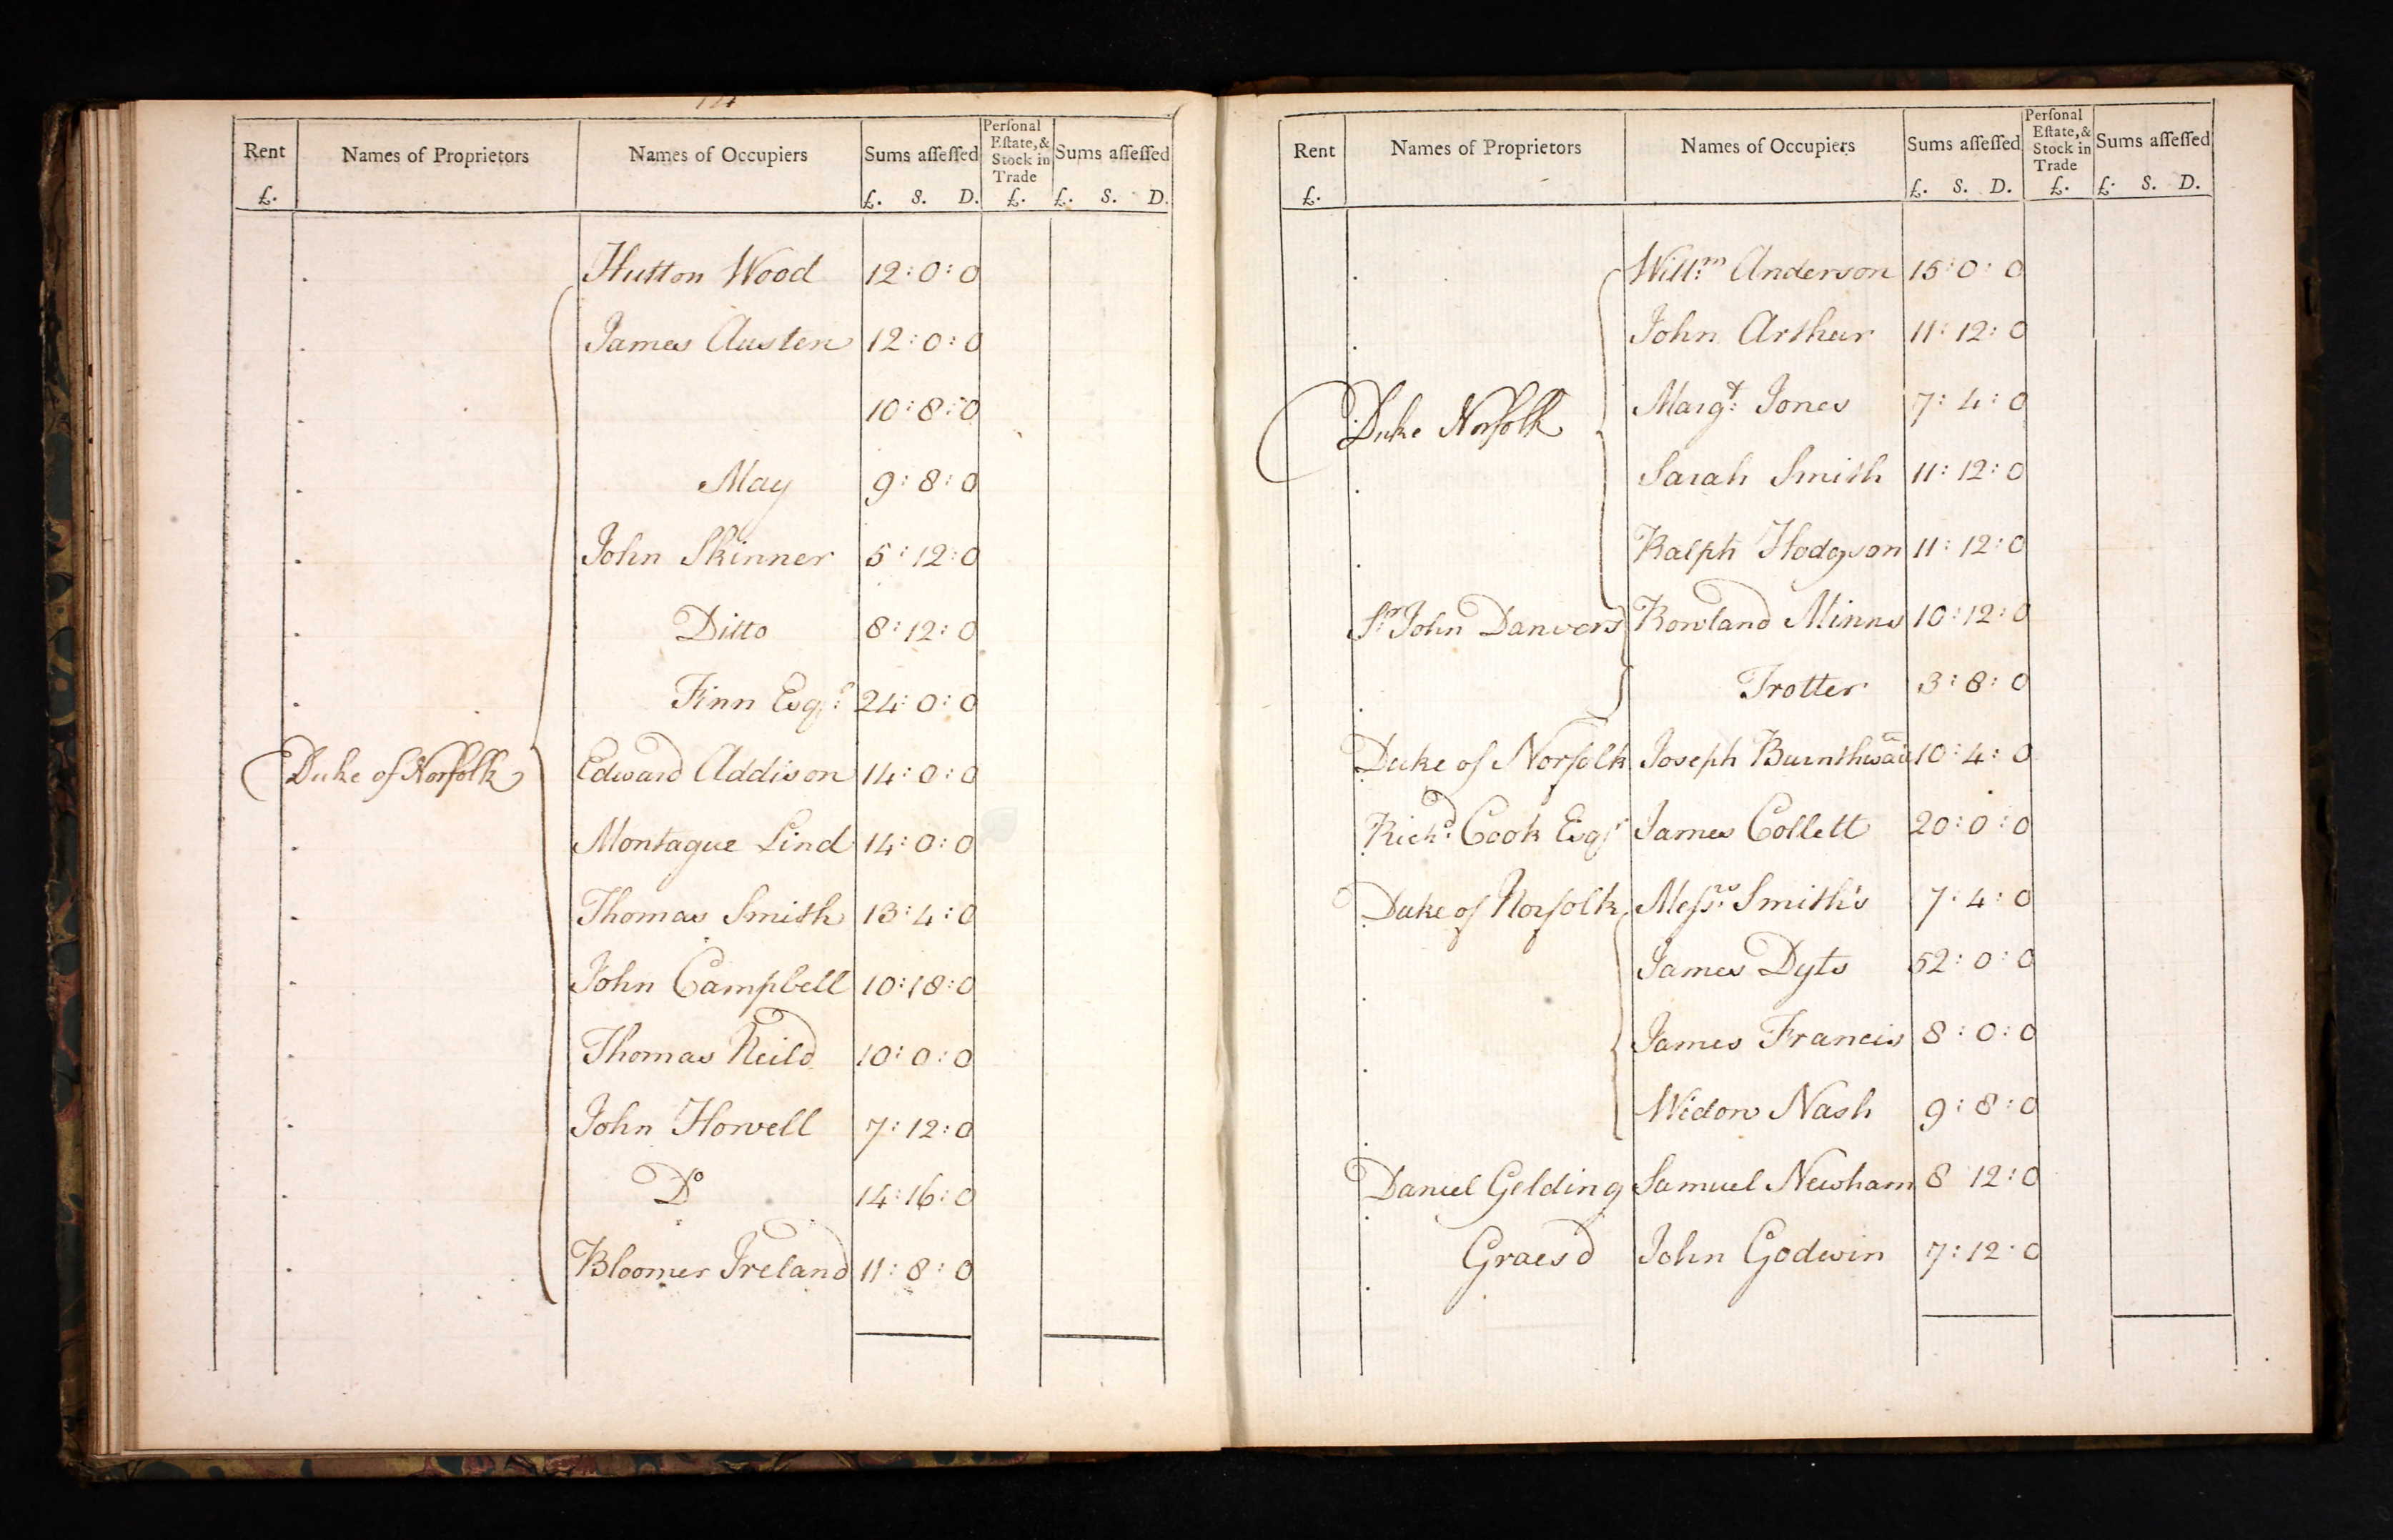 Rent Names of Proprietors Names of Occupiers Sums aſſeſſed Perſonal Eſtate, & Stock in Trade Sums aſſeſſed
£. £. S. D. £. £. S. D.
Hutton Wood 12:0:0
James Austen 12:0:0
10:8:0
May 9:8:0
John Skinner 5:12:0
Ditto 8:12:0
Finn Esqr. 24:0:0
Duke of Norfolk Edward Addison 14:0:0
Montague Lind 14:0:0
Thomas Smith 13:4:0
John Campbell 10:18:0
Thomas Neild 10:0:0
John Howell 7:12:0
Do 14:16:0
Bloomer Ireland 11:8:0
Rent Names of Proprietors Names of Occupiers Sums aſſeſſed Perſonal Eſtate, & Stock in Trade Sums aſſeſſed
£. £. S. D. £. £. S. D.
Willm. Anderson 15:0:0
John Arthur 11:12:0
Duke Norfolk Margt. Jones 7:4:0
Sarah Smith 11:12:0
Ralph Hodgson 11:12:0
Sr. John Danvers Rowland Minns 10:12:0
Trotter 3:8:0
Duke of Norfolk Joseph 10:4:0
Richd. Cook Esqr James Collett 20:0:0
Duke of Norfolk Meſsrs. Smith's 7:4:0
James Dyts 52:0:0
James Francis 8:0:0
Widow Nash 9:8:0
Daniel Gelding Samuel Newham 8 12:0
Graesd John Godwin 7:12:0